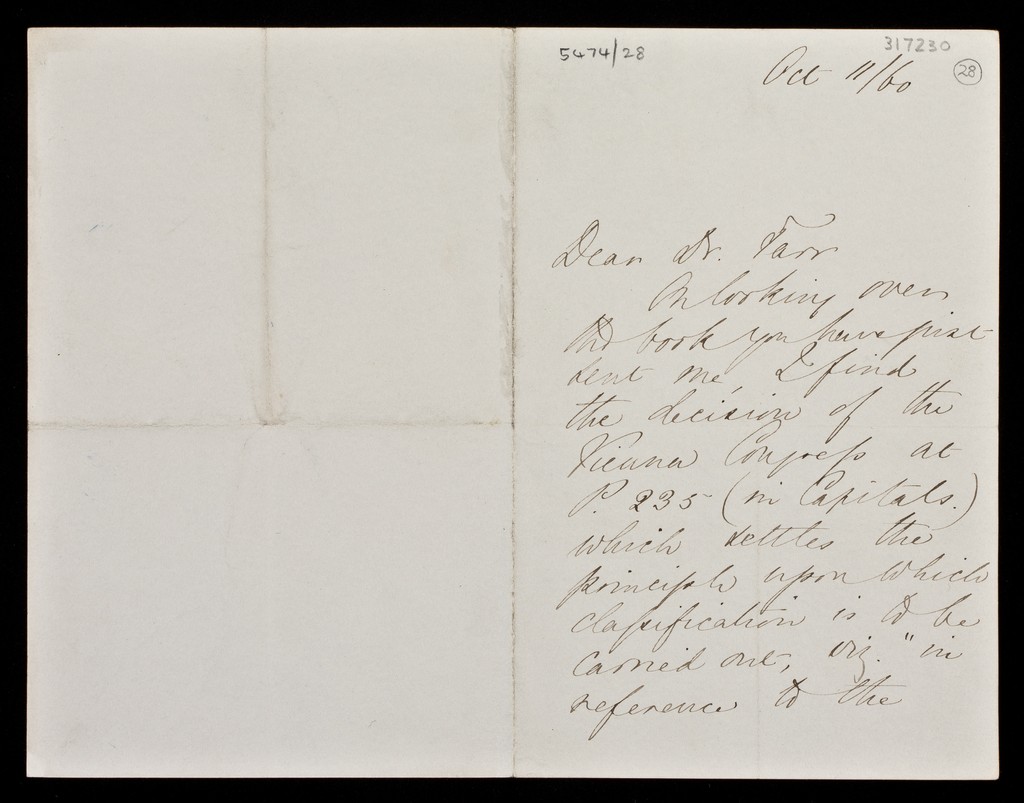 5474/28
317230
28
Oct 11/60
Dear Dr. Farr
On looking over
the book you have just
sent me, I find
the decision of the
Vienna Congress at
P. 235 (in Capitals.)
which settles the
principle upon which
classification is to be
carried out, viz. "in
reference to the